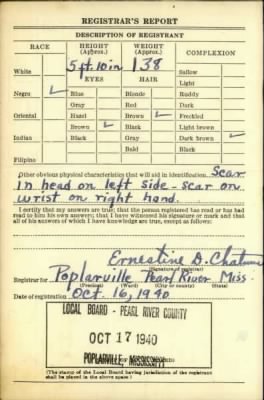 REGISTRAR'S REPORT
DESCRIPTION OF REGISTRANT
RACE HEIGHT (Approx.) WEIGHT (Approx.) COMPLEXION
White 5 ft. 10 in 138 Sallow
EYES HAIR Light
Negro ✓ Blue Blonde Ruddy
Gray Red Dark
Oriental Hazel Brown ✓ Freckled
Brown ✓ Black Light brown
Indian Black Gray Dark brown ✓
Bald Black
Filipino
Other obvious physical characteristics that will aid in identification Scar
in head on left side - scar on
wrist on right hand.
I certify that my answers are true; that the person registered has read or has had
read to him his own answers; that I have witnessed his signature or mark and that
all of his answers of which I have knowledge are true, except as follows:
Ernestine D.
(Signature of registrar)
Registrar for Poplarville Pearl River Miss.
(Precinct) (Ward) (City or county) (State)
Date of registration Oct. 16, 1940
LOCAL BOARD - PEARL RIVER COUNTY
OCT 17 1940
POPLARVILLE, MISSISSIPPI
(The stamp of the Local Board having jurisdiction of the registrant
shall be placed in the above space.)